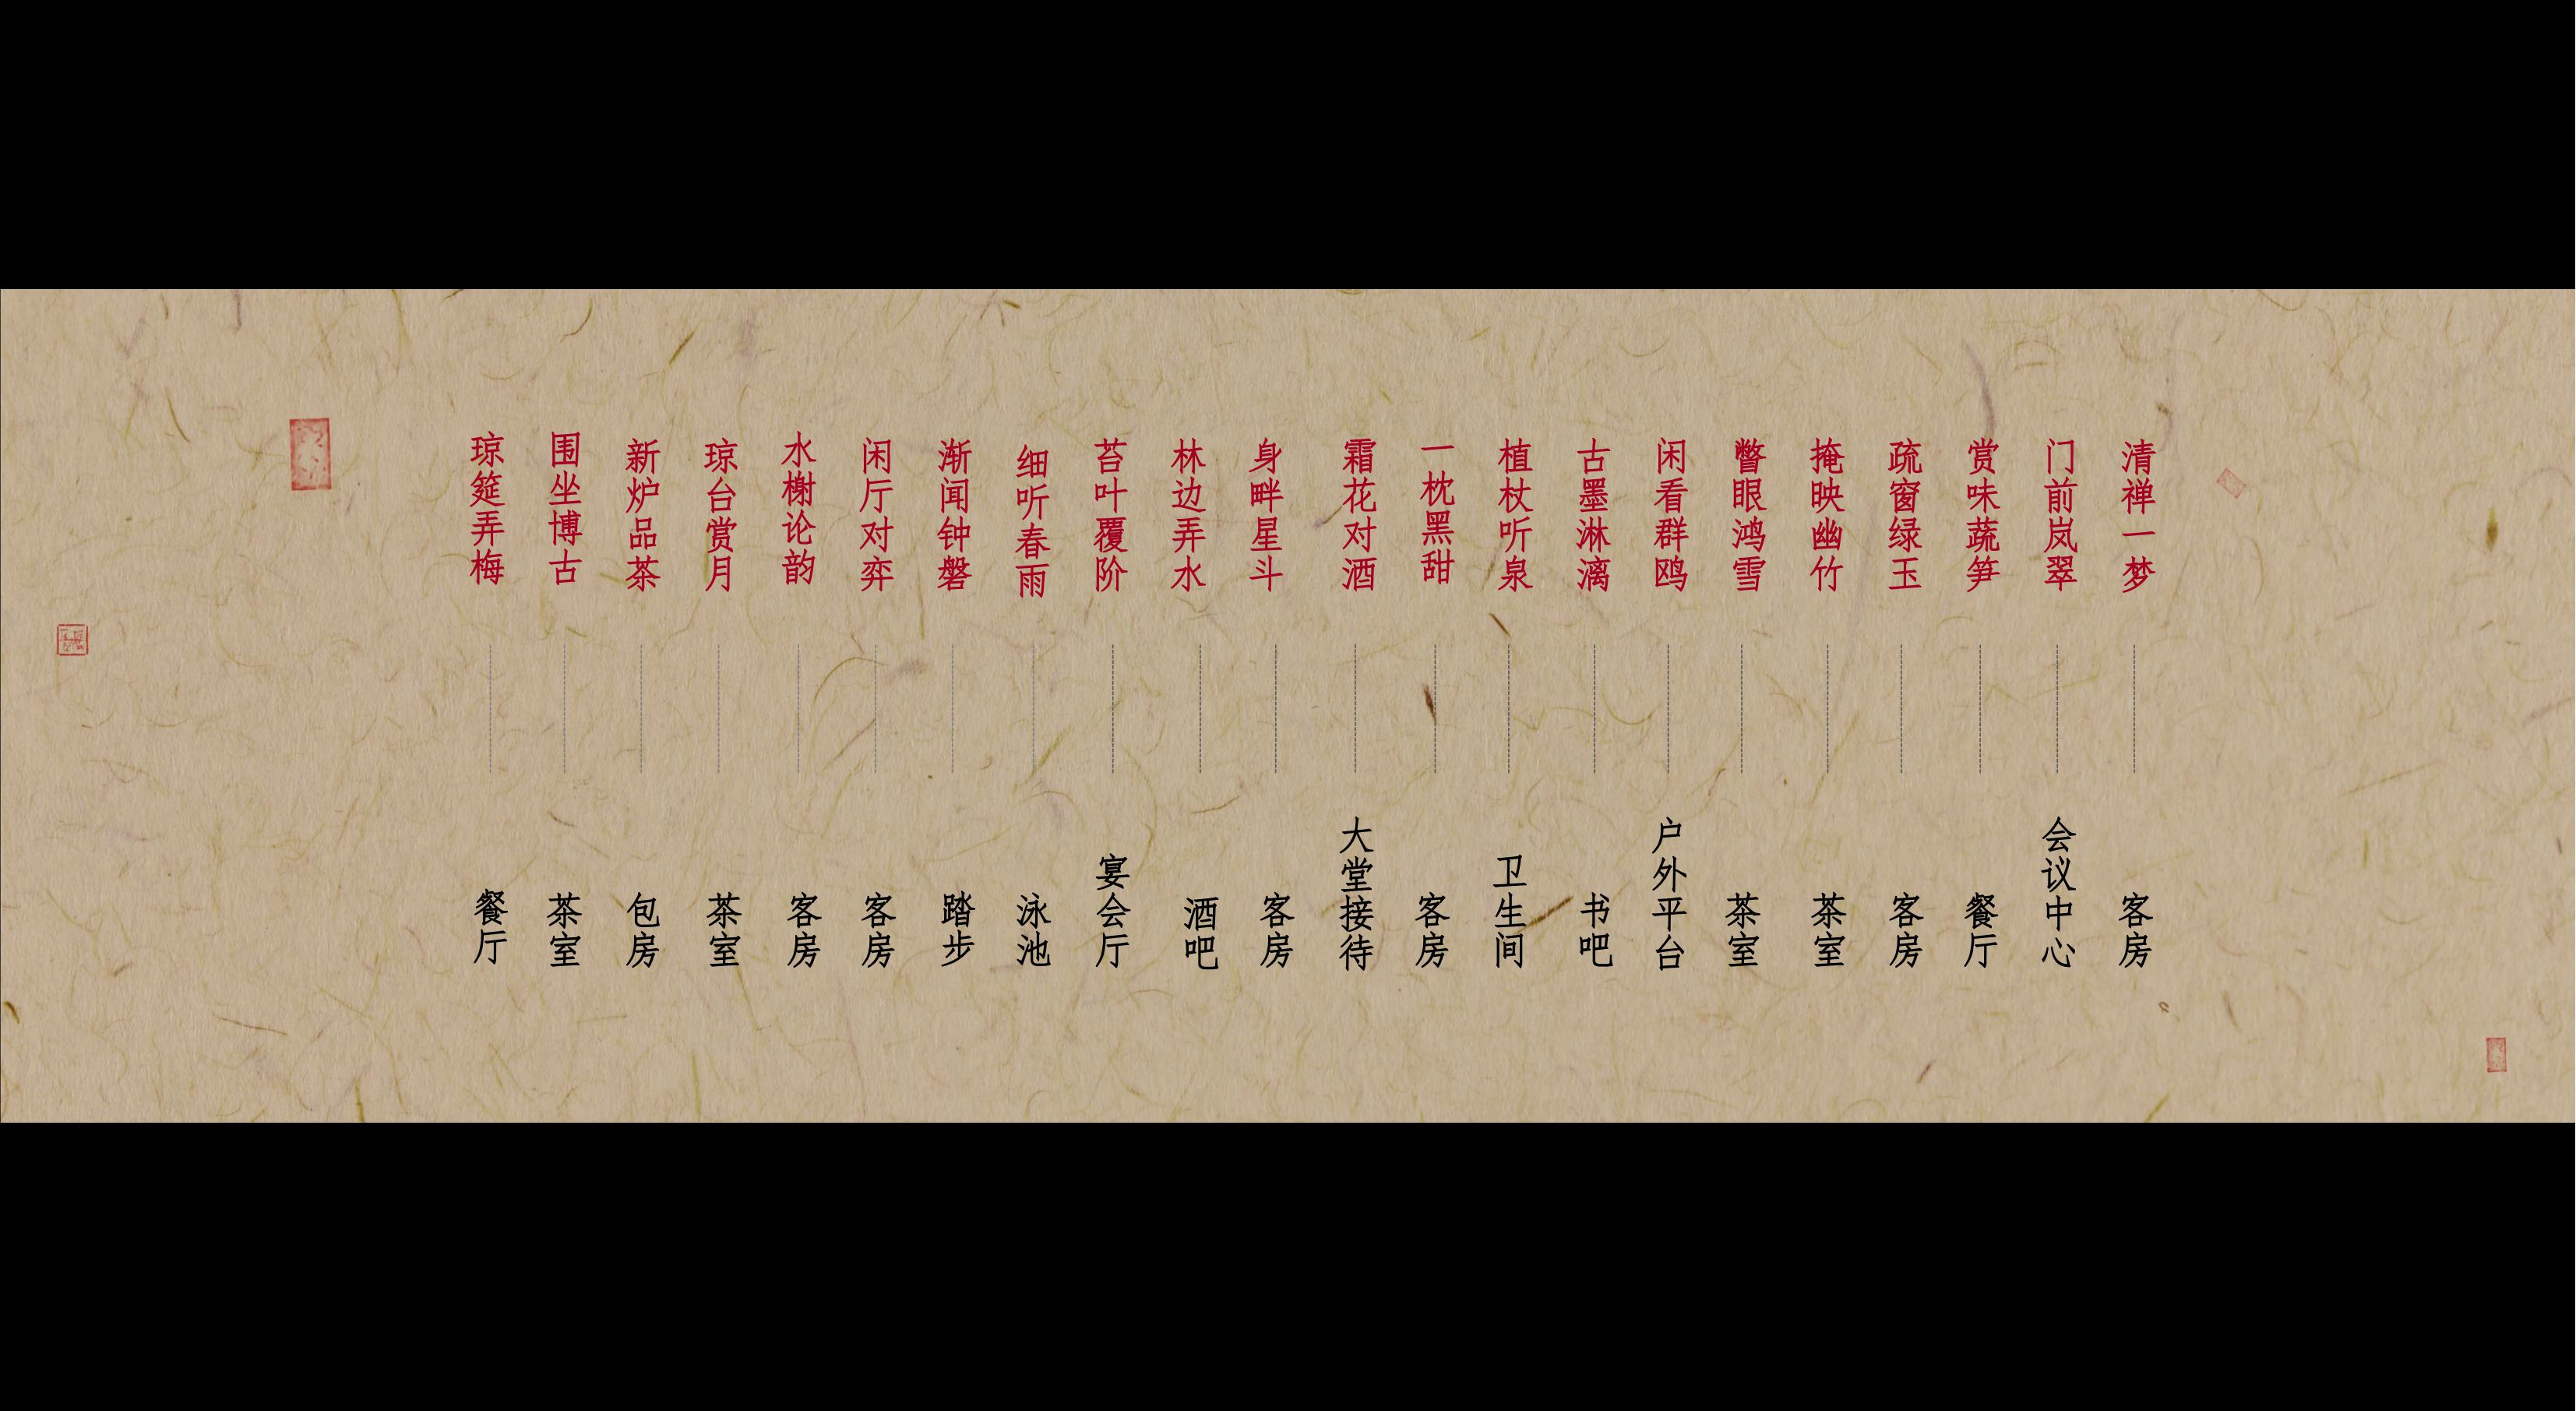 清禅一梦
客房
门前岚翠
会议中心
赏味蔬笋
餐厅
疏窗绿玉
客房
掩映幽竹
茶室
瞥眼鸿雪
茶室
闲看群鸥
户外平台
古墨淋漓
书吧
植杖听泉
卫生间
一枕黑甜
客房
霜花对酒
大堂接待
身畔星斗
客房
林边弄水
酒吧
苔叶覆阶
宴会厅
细听春雨
泳池
渐闻钟磐
踏步
闲厅对弈
客房
水榭论韵
客房
琼台赏月
茶室
新炉品茶
包房
围坐博古
茶室
琼筵弄梅
餐厅